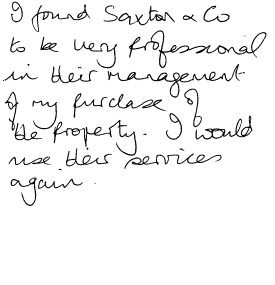 I found Saxton & Co
to be very professional
in their management
of my purchase of
the property. I would
use their services
again.